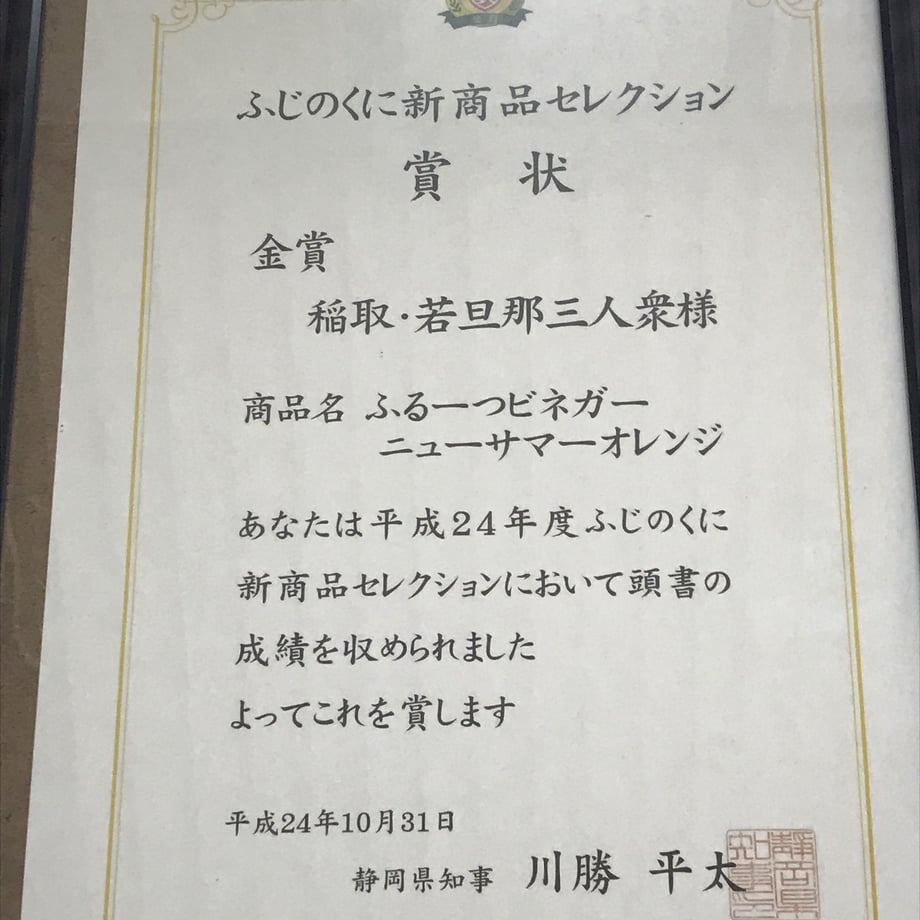 ふじのくに新商品セレクション
賞 状
金賞
稲取・若旦那三人衆様
商品名 ふるーつビネガー
ニューサマーオレンジ
あなたは平成24年度ふじのくに
新商品セレクションにおいて頭書の
成績を収められました
よってこれを賞します
平成24年10月31日
静岡県知事 川勝 平太